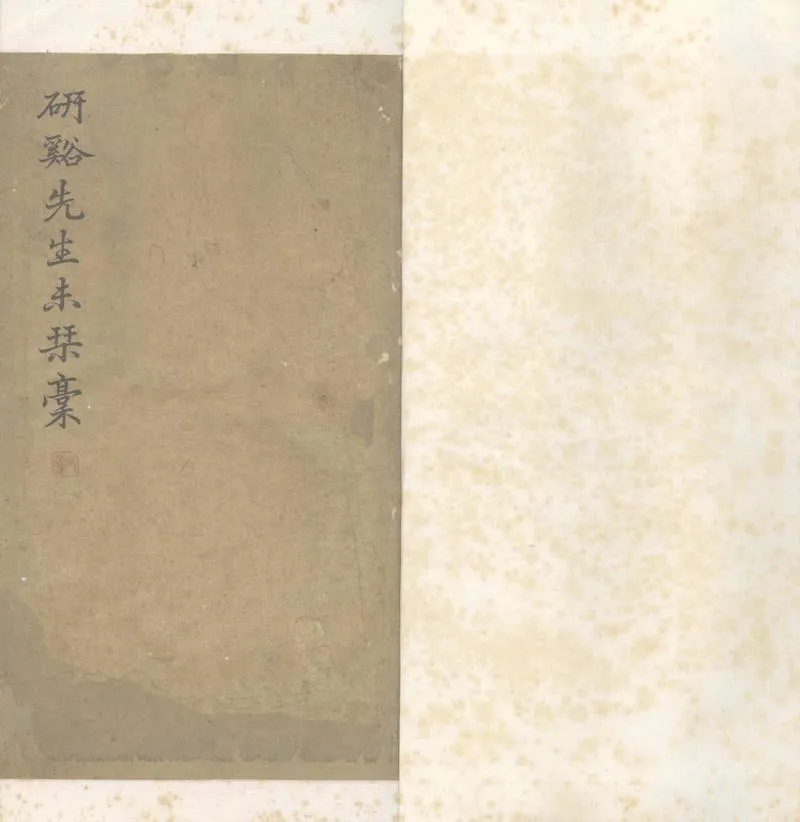 研谿先生未栞稾